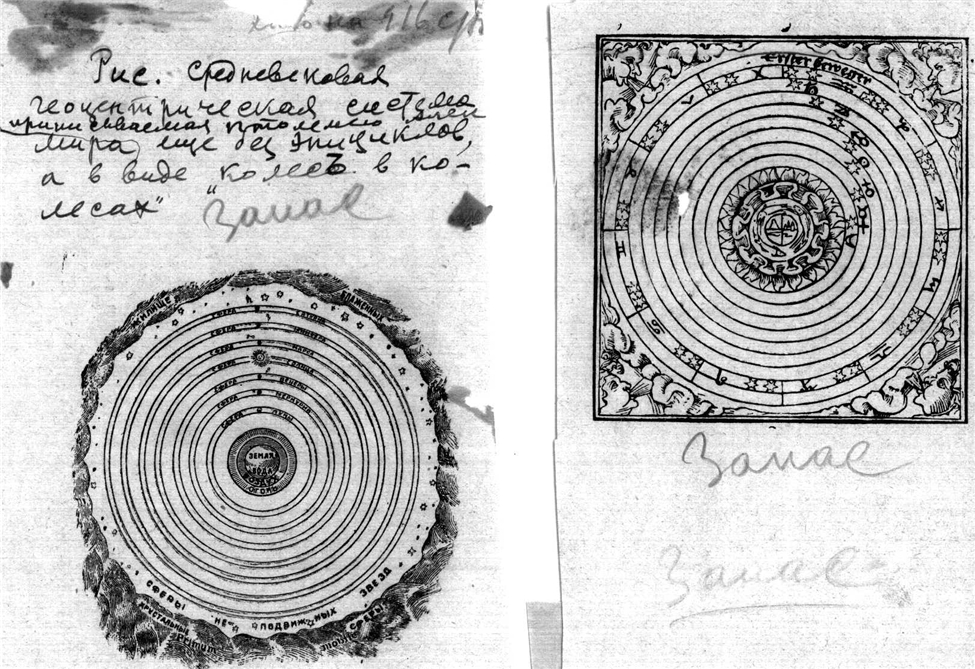 на 416 стр
Рис. Средневековая
геоцентрическая система
приписываемая Птолемею
мира, еще без эпициклов,
а в виде "колесъ в ко-
лесах"
Запас
ЖИЛИЩЕ БЛАЖЕННЫХ
СФЕРА САТУРНА
СФЕРА ЮПИТЕРА
СФЕРА МАРСА
СФЕРА СОЛНЦА
СФЕРА ВЕНЕРЫ
СФЕРА МЕРКУРИЯ
СФЕРА ЛУНЫ
ЗЕМЛЯ
ВОДА
ВОЗДУХ
ОГОНЬ
СФЕРЫ НЕПОДВИЖНЫХ ЗВЕЗД
ХРУСТАЛЬНЫЕ СФЕРЫ
Primum
Erster beweger
Запас
Запас